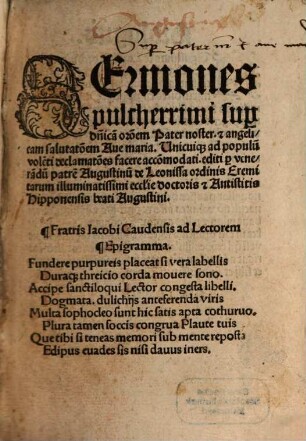 Sup pater nr̄ ⁊ aue mar
SErmones
pulcherrimi sup
dn̄icā orōem Pater noster. ⁊ angeli-
cam salutatōem Aue maria. Unicuiqꝫ ad populū
volēti declamatōes facere accōmodati. editi ꝑ vene-
rādū patrē Augustinū de Leonissa ordinis Eremi
tarum illuminatissimi eccl'ie doctoris ⁊ Antistitis
Hipponensis btāti Augustini.
¶ Fratris Iacobi Gaudensis ad Lectorem
¶ Epigramma.
Fundere purpureis placeat si vera labellis
Duraqꝫ threicio corda mouere sono.
Accipe sanctiloqui Lector congesta libelli.
Dogmata. dulichijs anteferenda viris
Multa sophocleo sunt hic satis apta cothurno.
Plura tamen soccis congrua Plaute tuis
Que tibi si teneas memori sub mente reposta
Edipus euades sis nisi dauus iners.